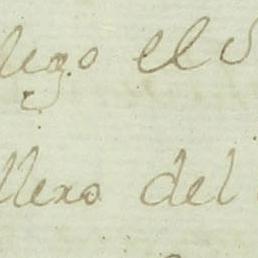 llego el S
llero del